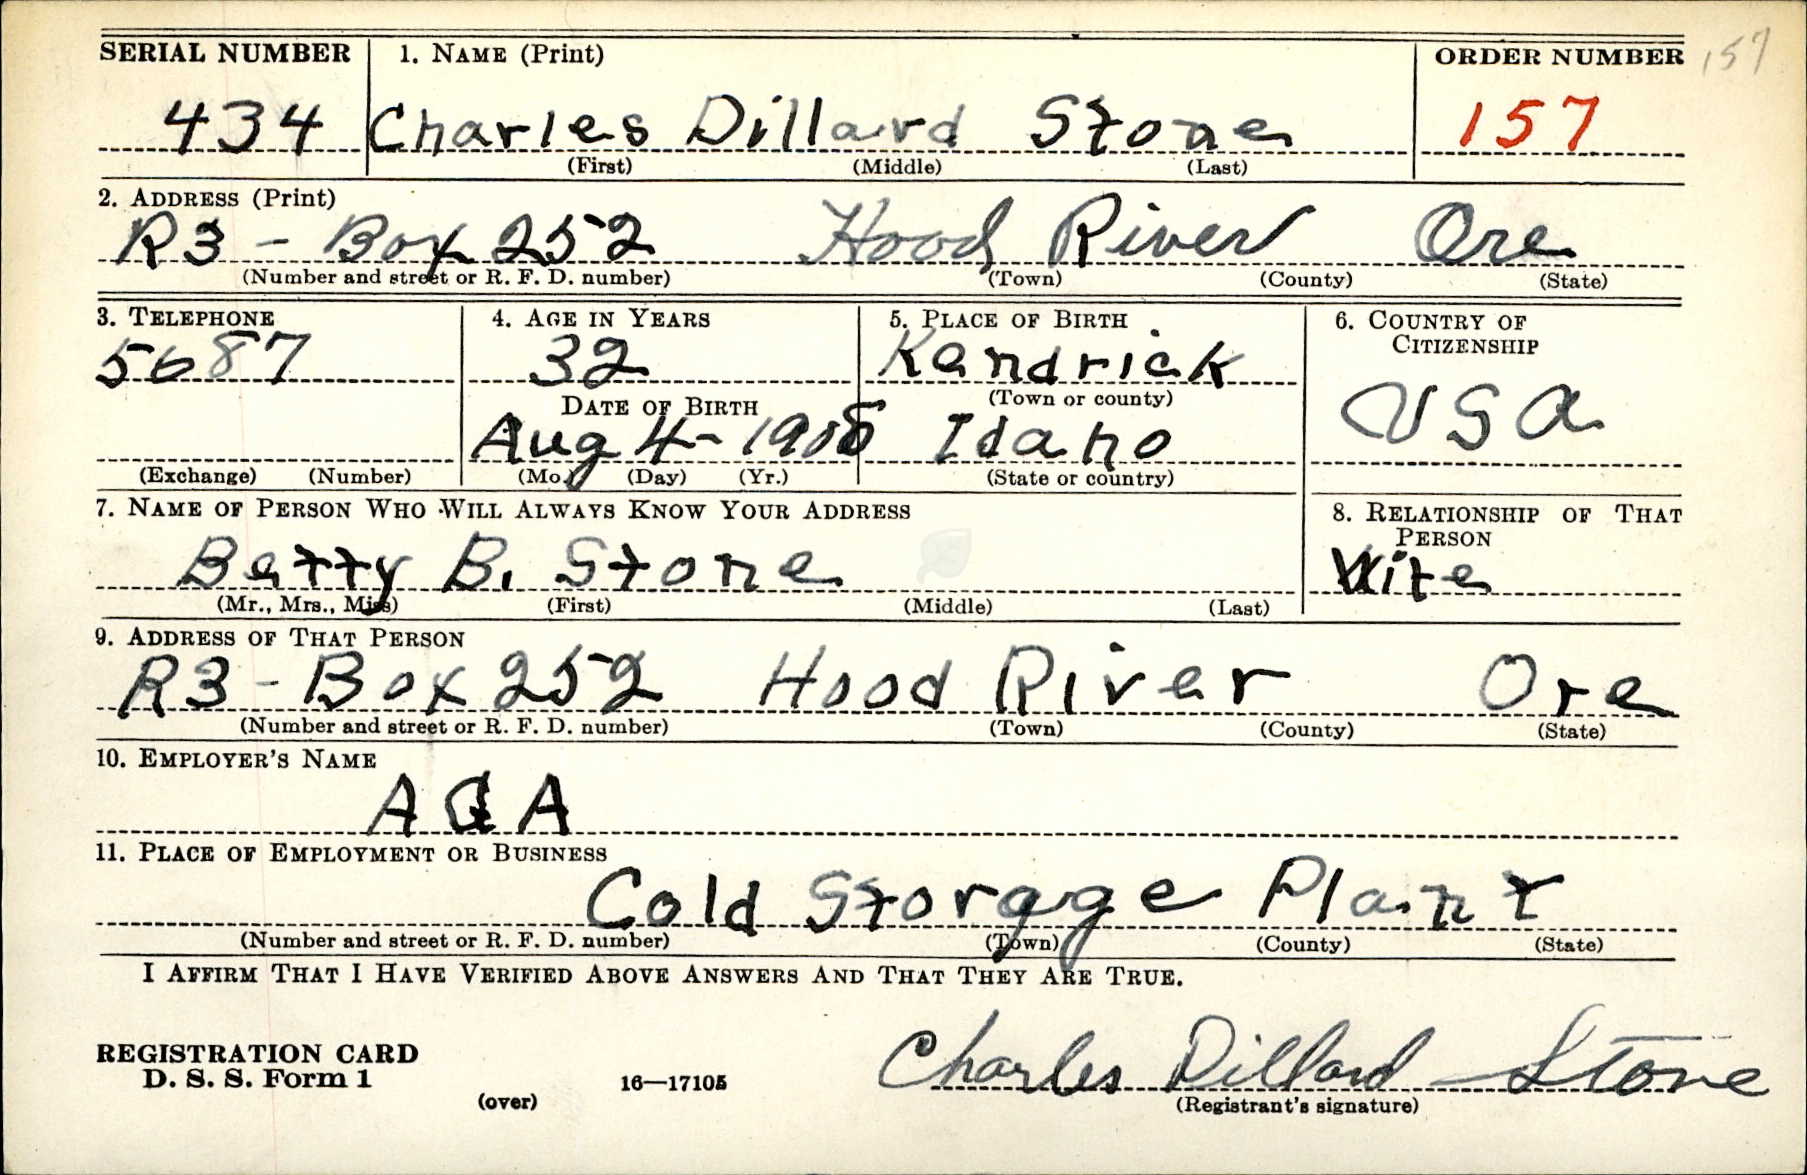 SERIAL NUMBER 1. NAME (Print) ORDER NUMBER 157
434 Charles Dillard Stone 157
(First) (Middle) (Last)
2. ADDRESS (Print)
R3 - Box 252 Hood River Ore
(Number and street or R. F. D. number) (Town) (County) (State)
3. TELEPHONE 4. AGE IN YEARS 5. PLACE OF BIRTH 6. COUNTRY OF
CITIZENSHIP
5687 32 Kendrick
(Town or county)
DATE OF BIRTH
Aug 4- 1908 Idaho USA
(Exchange) (Number) (Mo.) (Day) (Yr.) (State or country)
7. NAME OF PERSON WHO WILL ALWAYS KNOW YOUR ADDRESS 8. RELATIONSHIP OF THAT
PERSON
Betty B. Stone Wife
(Mr., Mrs., Miss) (First) (Middle) (Last)
9. ADDRESS OF THAT PERSON
R3 - Box 252 Hood River Ore
(Number and street or R. F. D. number) (Town) (County) (State)
10. EMPLOYER'S NAME
A G A
11. PLACE OF EMPLOYMENT OR BUSINESS
Cold Storage Plant
(Number and street or R. F. D. number) (Town) (County) (State)
I AFFIRM THAT I HAVE VERIFIED ABOVE ANSWERS AND THAT THEY ARE TRUE.
REGISTRATION CARD
D. S. S. Form 1 16—17105 Charles Dillard Stone
(over) (Registrant's signature)